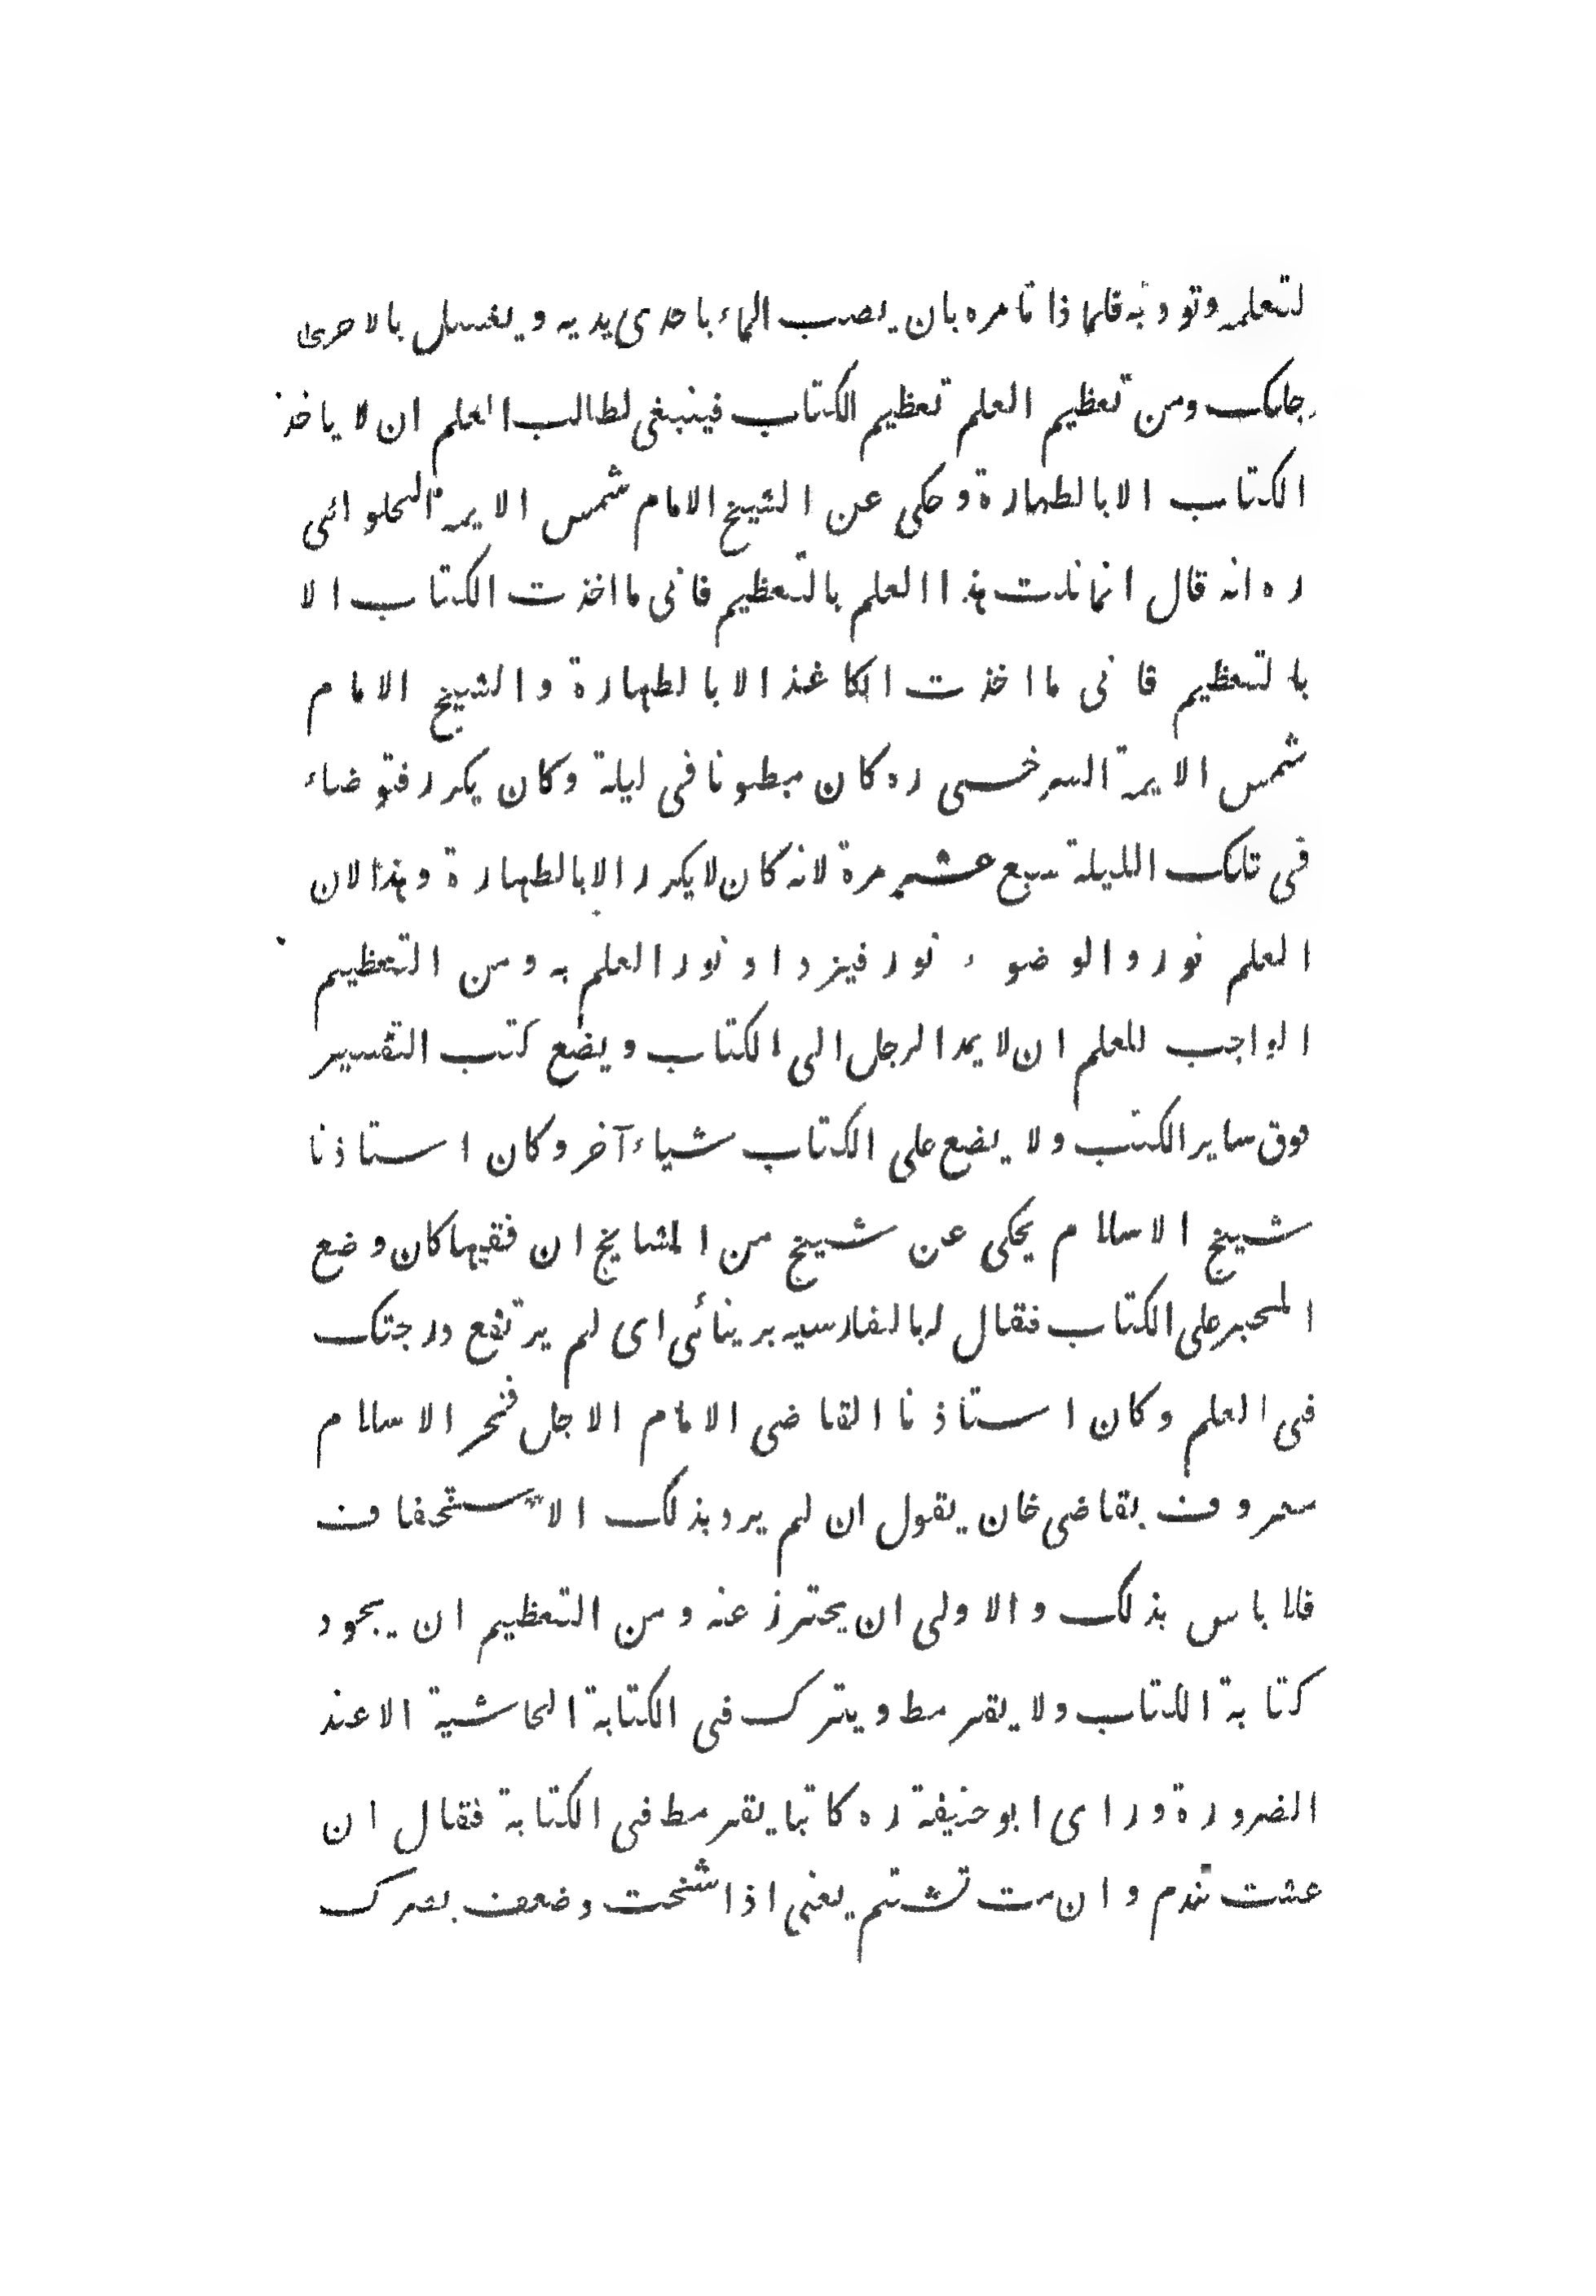 لتعلمه وتودبه فلماذا تامره بان يصب الماء باحدى يديه ويغسل بالاخرى
رجلك ومن تعظيم العلم تعظيم الكتاب فينبغى لطالب العلم ان لا ياخذ
الكتاب الا بالطهارة وحكى عن الشيخ الامام شمس الايمة الحلوائى
ره انه قال انما نلت هذا العلم بالتعظيم فانى ما اخذت الكتاب الا
بالتعظيم فانى ما اخذت الكاغذ الا بالطهارة والشيخ الامام
شمس الايمة السرخسى ره كان مبطونا فى ليلة وكان يكرر فتوضاء
فى تلك الليلة سبع عشر مرة لانه كان لا يكرر الا بالطهارة وهذا لان
العلم نور والوضوء نور فيزداو نور العلم به ومن التعظيم
الواجب للعلم ان لا يمد الرجل الى الكتاب ويضع كتب التفسير
فوق ساير الكتب ولا يضع على الكتاب شياء آخر وكان استاذنا
شيخ الاسلام يحكى عن شيخ من المشايخ ان فقيها كان وضع
المحبر على الكتاب فقال له بالفارسيه برينائى اى لم يرتفع درجتك
فى العلم وكان استاذنا القاضى الامام الاجل فخر الاسلام
معروف بقاضى خان يقول ان لم يرد بذلك الاستخفاف
فلا باس بذلك والاولى ان يحترز عنه ومن التعظيم ان يجود
كتابة الكتاب ولا يقرمط ويترك فى الكتابة الحاشية الا عند
الضرورة وراى ابو حنيفة ره كاتبا يقرمط فى الكتابة فقال ان
عشت تندم وان مت تشتم يعنى اذا شخت وضعف بصرك